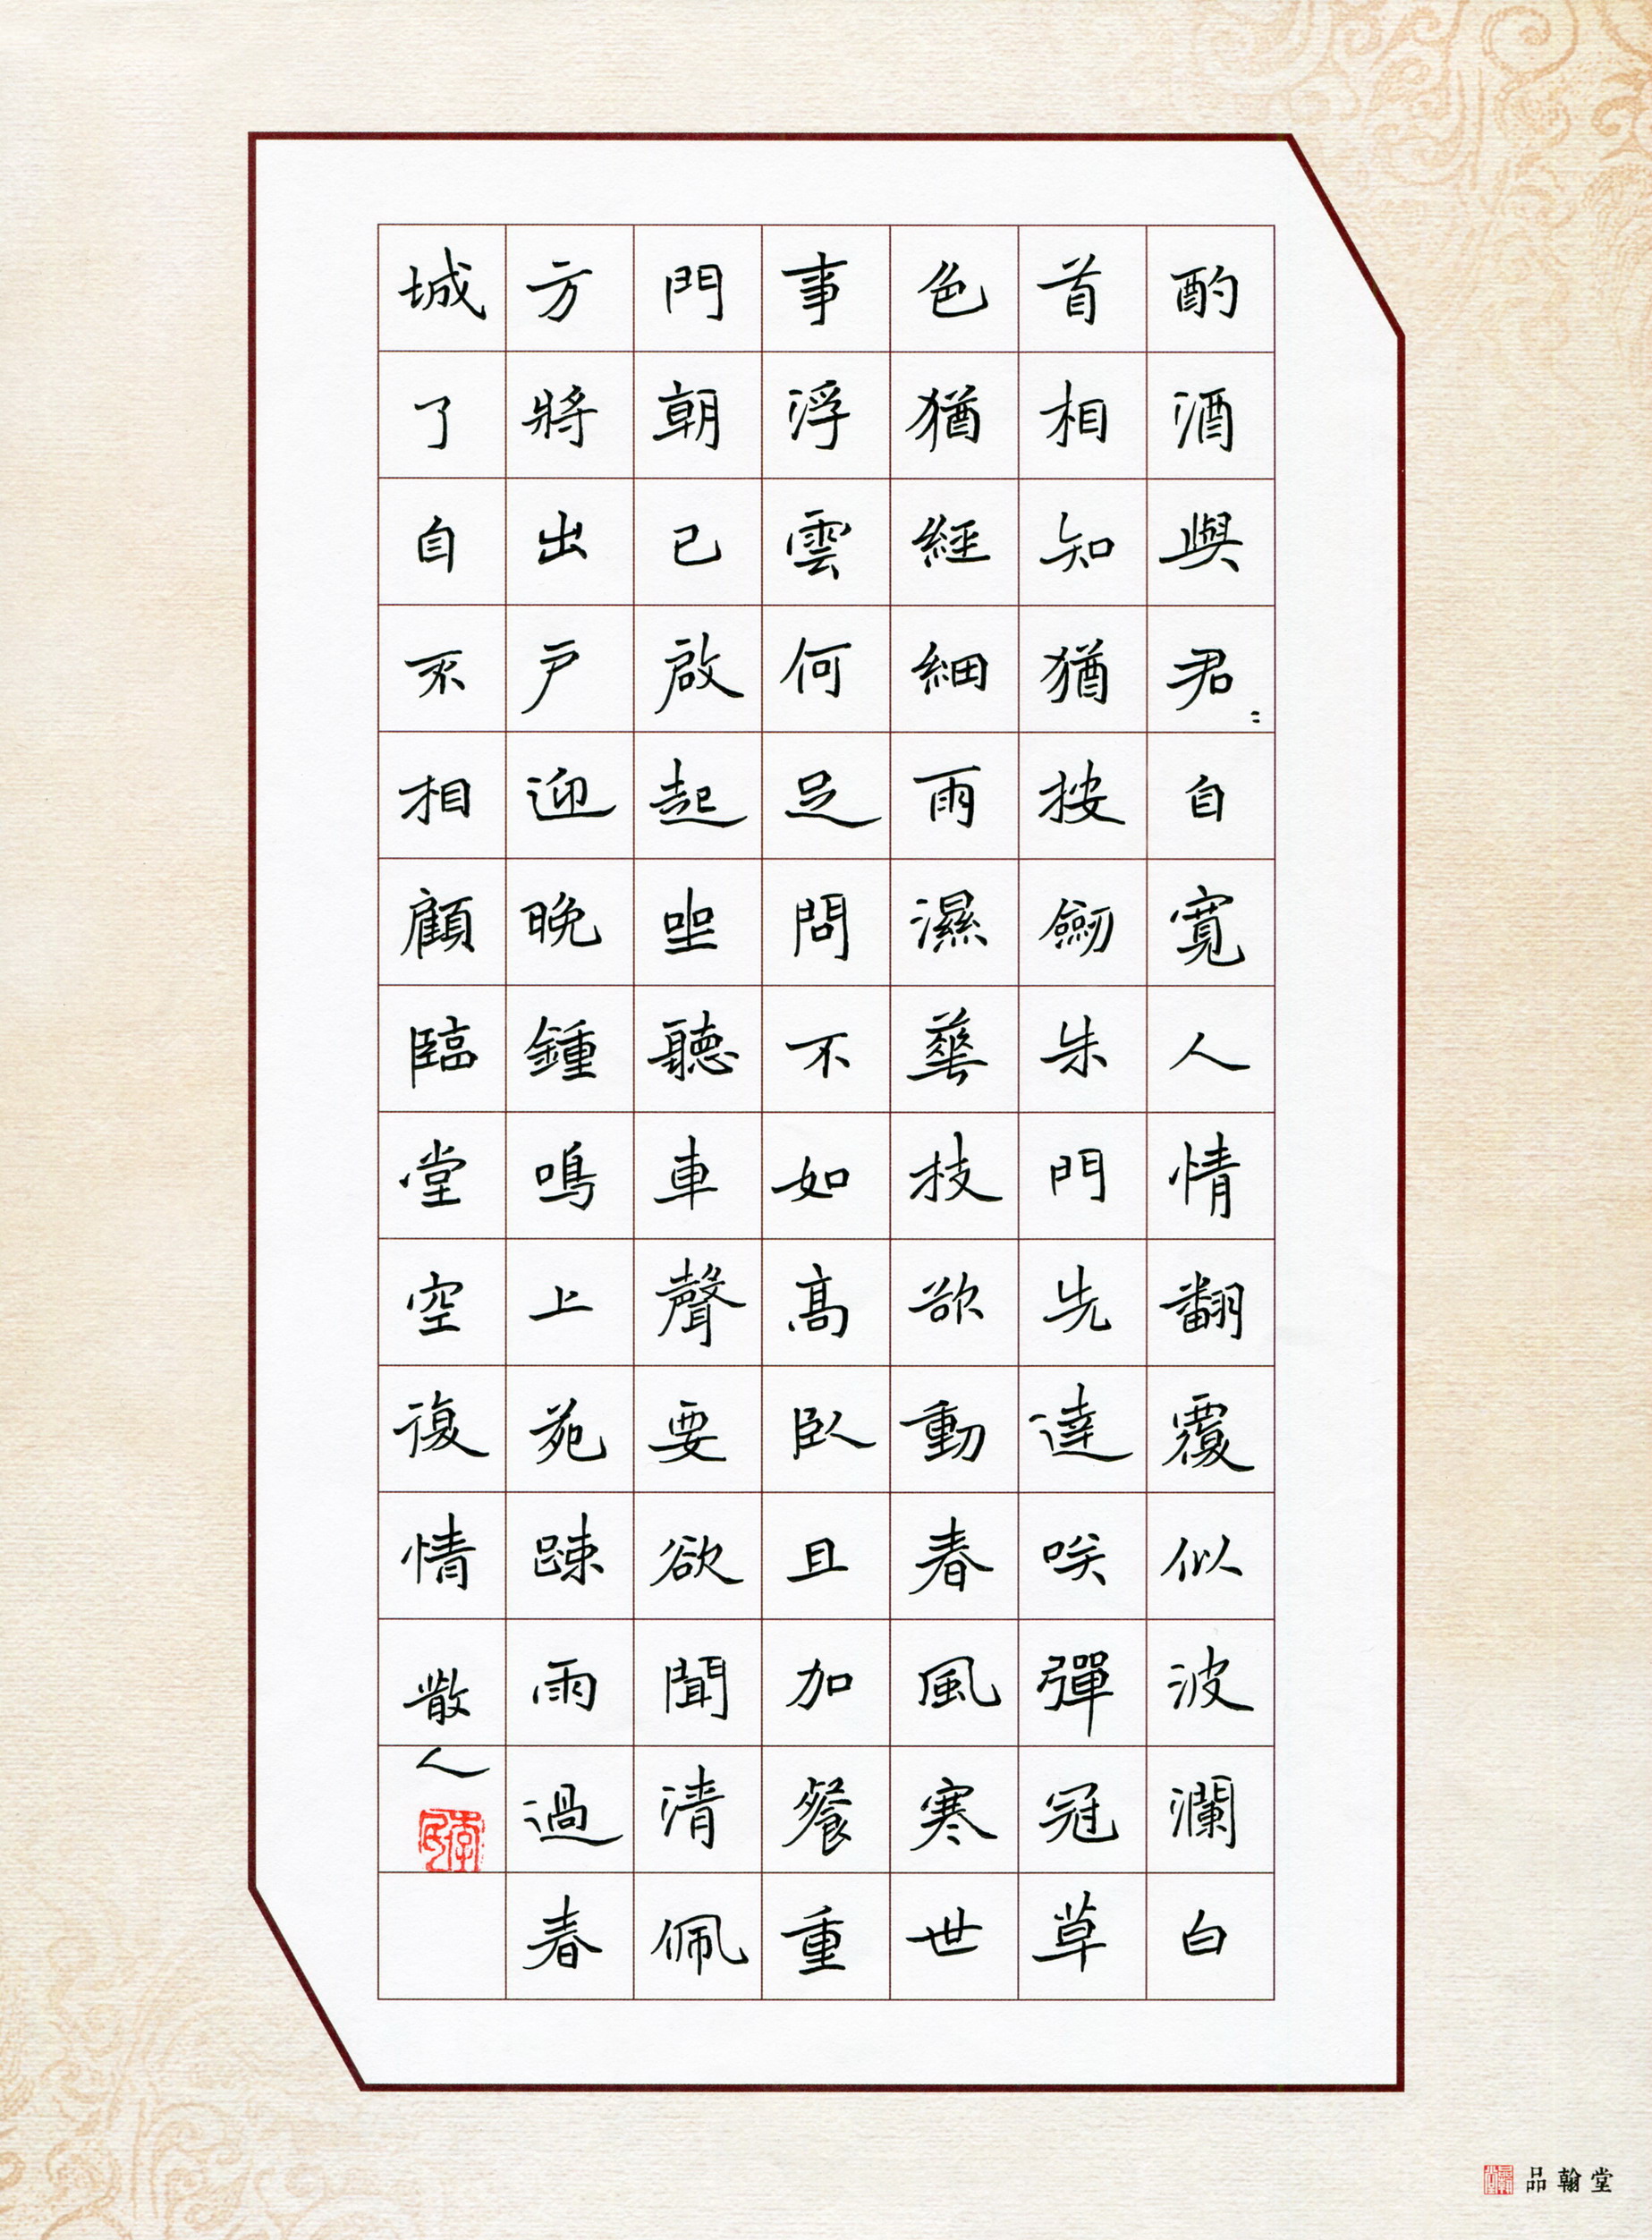 酌酒與君〻自寬人情翻覆似波瀾白
首相知猶按劒朱門先達咲彈冠草
色猶經細雨濕華枝欲動春風寒世
事浮雲何足問不如高臥且加餐重
門朝已啟起坐聽車聲要欲聞清佩
方將出戶迎晚鍾鳴上苑踈雨過春
城了自不相顧臨堂空復情散人
品翰堂